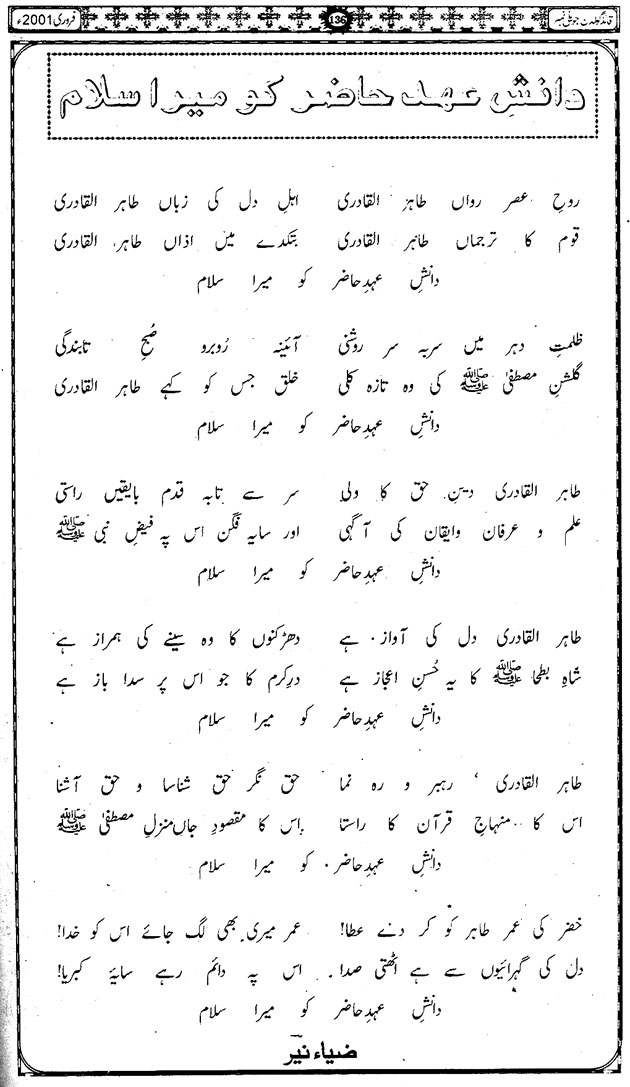 قائد گولڈن جوبلی نمبر 136 فروری 2001ء
دانشِ عہد حاضر کو میرا سلام
روحِ عصر رواں طاہر القادری اہلِ دل کی زباں طاہر القادری
قوم کا ترجماں طاہر القادری بتکدے میں اذاں طاہر القادری
دانشِ عہدِ حاضر کو میرا سلام
ظلمتِ دہر میں سر بہ سر روشنی آئینہ رُوبرو صُبحِ تابندگی
گلشنِ مصطفیٰ ﷺ کی وہ تازہ کلی خلق جس کو کہے طاہر القادری
دانشِ عہدِ حاضر کو میرا سلام
طاہر القادری دینِ حق کا ولی سر سے تابہ قدم بالیقیں راستی
علم و عرفان وایقان کی آگہی اور سایہ فگن اس پہ فیضِ نبی ﷺ
دانشِ عہدِ حاضر کو میرا سلام
طاہر القادری دل کی آواز ہے دھڑکنوں کا وہ سینے کی ہمراز ہے
شاہِ بطحا ﷺ کا یہ حُسنِ اعجاز ہے درِکرم کا جو اس پر سدا باز ہے
دانشِ عہدِ حاضر کو میرا سلام
طاہر القادری ، رہبر و رہ نما حق نگر حق شناسا و حق آشنا
اس کا منہاج قرآن کا راستا اس کا مقصودِ جاں منزلِ مصطفیٰ ﷺ
دانشِ عہدِ حاضر کو میرا سلام
خضر کی عمر طاہر کو کر دے عطا! عمر میری بھی لگ جائے اس کو خدا!
دل کی گہرائیوں سے ہے اٹھتی صدا اس پہ دائم رہے سایۂ کبریا!
دانشِ عہدِ حاضر کو میرا سلام
ضیاء نیر